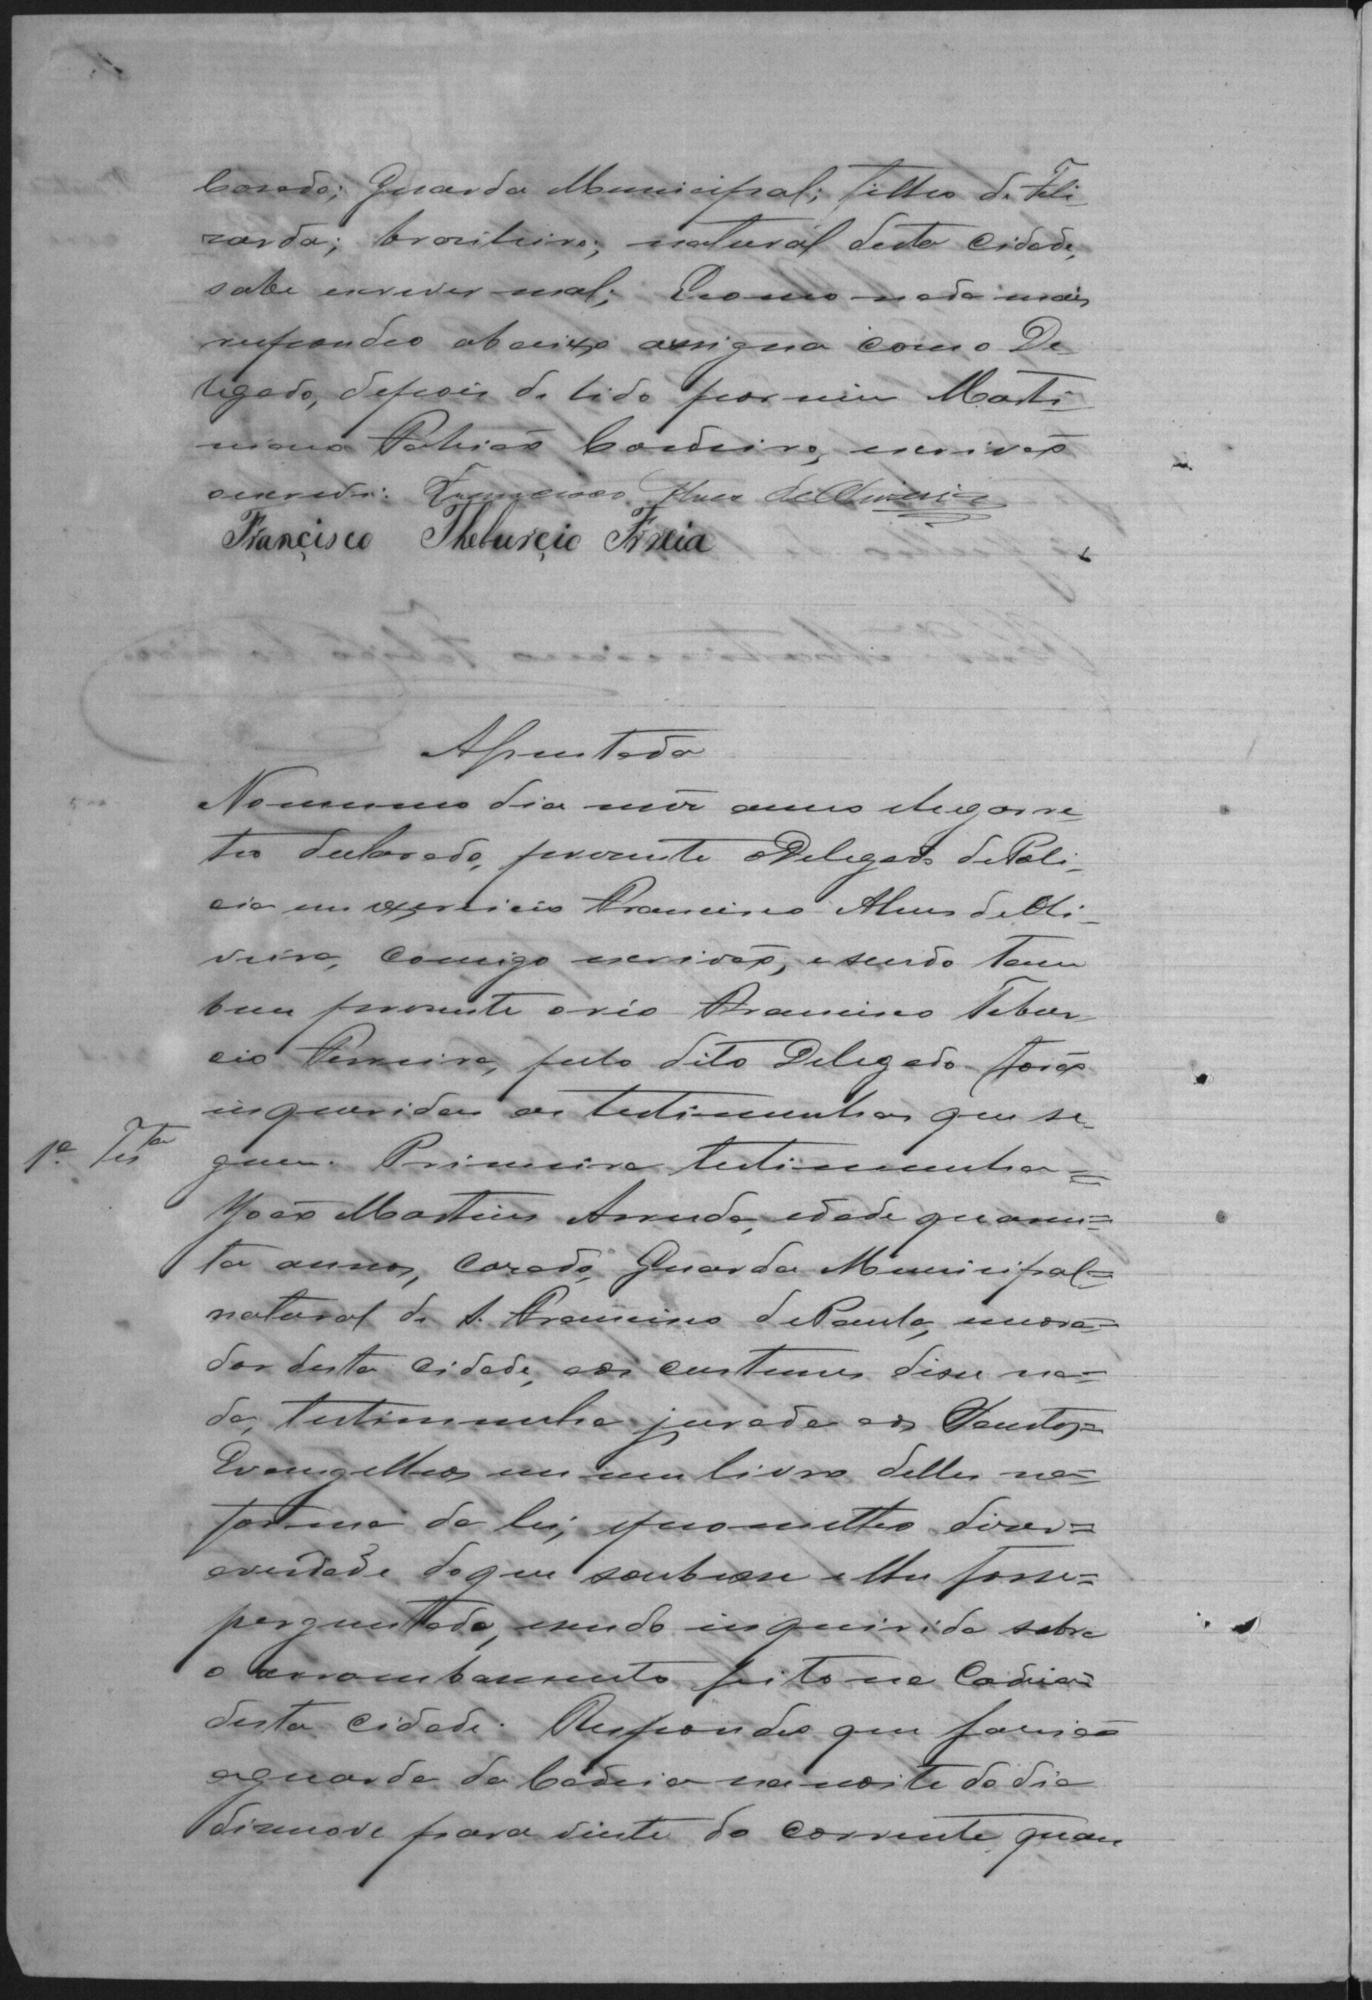 Casado; Guarda Municipal; filho de Feli
zarda; brazileiro; natural desta cidade,
sabe escrever mal; E como nada mais
respondeo abaixo assigna com o De
legado, depois de lido por mim Marti
niano Fabião Cordeiro, escrivão
escrevi: Francisco Alves de Oliveira
Francisco Theburçio
Assentada
No mesmo dia mêz anno e lugar re
tro declarado, presente o Delegado de Poli-
cia em exercicio Francisco Alves de Oli-
veira, comigo escrivão, e sendo tam
bem presente o réo Francisco Tibur
cio Ferreira, pelo dito Delegado forão
inqueridas as testimunhas que se-
1ª Testa
guem. Primeira testimunha =
João Martins Arruda, idade quaren=
ta annos, cazado, Guarda Municipal=
natural de S. Francisco de Paula, mora=
dor desta cidade, aos custumes disse na=
da, testimunha jurada aos Santos=
Evangelhos em um livro delles na=
forma da lei, e prometteo dizer=
averdade do que soubesse e lhe fosse=
perguntado, e sendo inquirida sobre
o arrombamento feito na Cadeia=
desta cidade. Respondeo que fazia
aguarda da Cadeia na noite do dia
desenove para vinte do corrente, quan